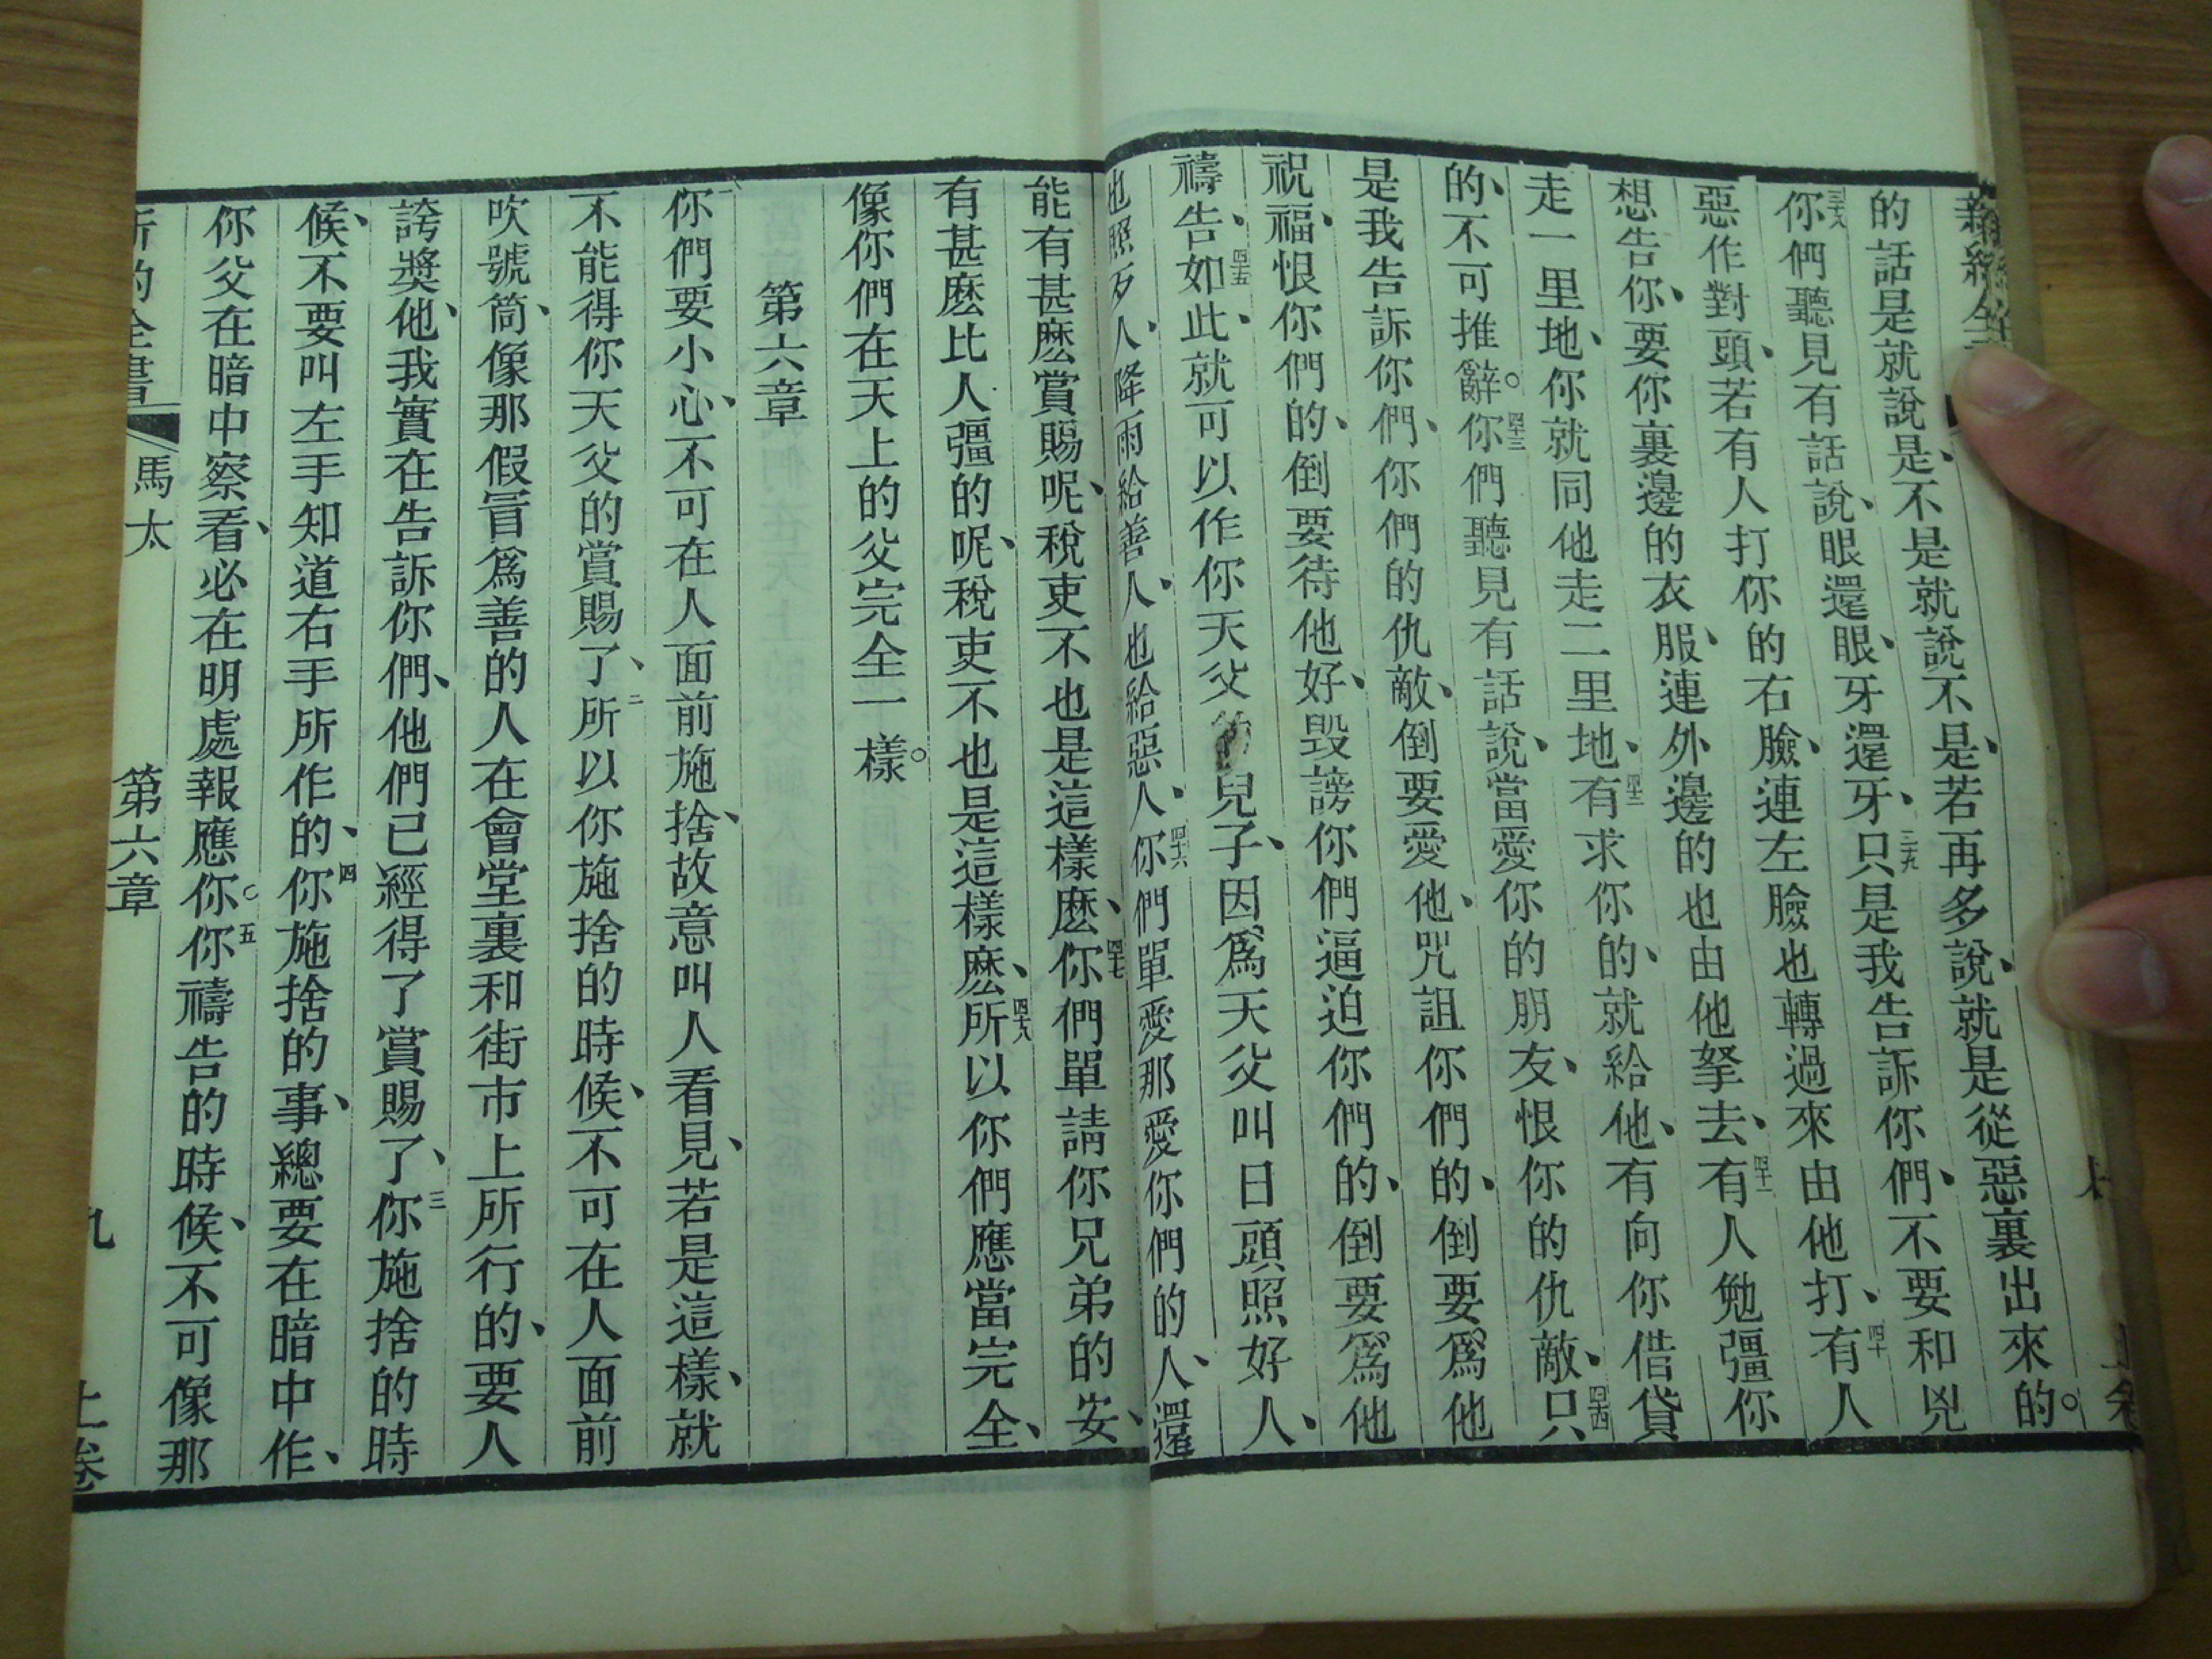 的話是就說是、不是就說不是、若再多說、就是從惡裏出來的。
三十八你們聽見有話說、眼還眼、牙還牙、三十九只是我告訴你們、不要和兇
惡作對頭、若有人打你的右臉、連左臉也轉過來由他打、四十有人
想告你、要你裏邊的衣服、連外邊的也由他拏去、四十一有人勉彊你
走一里地、你就同他走二里地、四十二有求你的、就給他、有向你借貸
的、不可推辭。四十三你們聽見有話說、當愛你的朋友、恨你的仇敵、四十四只
是我告訴你們、你們的仇敵、倒要愛他、咒詛你們的、倒要爲他
祝福、恨你們的、倒要待他好、毀謗你們逼迫你們的、倒要爲他
禱告、四十五如此、就可以作你天父兒子、因爲天父叫日頭照好人、
也照歹人、降雨給善人、也給惡人、四十六你們單愛那愛你們的人、還
能有甚麽賞賜呢、稅吏不也是這樣麽、四十七你們單請你兄弟的安、
有甚麽比人彊的呢、稅吏不也是這樣麽、四十八所以你們應當完全、
像你們在天上的父完全一樣。
第六章
一你們要小心、不可在人面前施捨、故意叫人看見、若是這樣、就
不能得你天父的賞賜了、二所以你施捨的時候、不可在人面前
吹號筒、像那假冒爲善的人在會堂裏和街市上所行的、要人
誇奬他、我實在告訴你們、他們已經得了賞賜了、三你施捨的時
候、不要叫左手知道右手所作的、四你施捨的事、總要在暗中作、
你父在暗中察看、必在明處報應你。五你禱告的時候、不可像那
新約全書 馬太 第六章 九 上卷